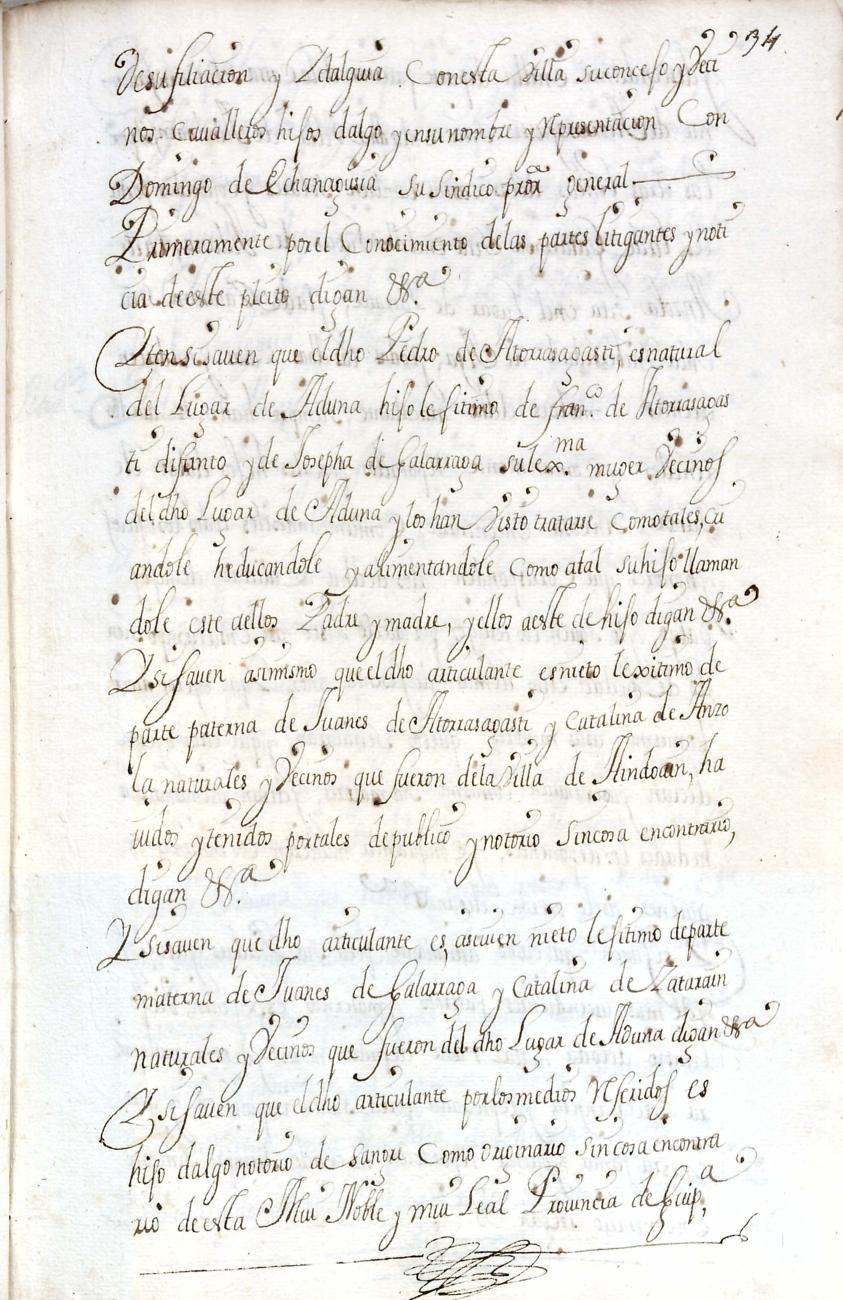 34
desu filiacion y Ydalguia. Conesta Villa su concejo y Veci
nos, Cavalleros hijos dalgo y ensu nombre y Representacion Con
Domingo de Echanagusia su sindico pror general
Primeramente por el Conocimiento delas partes litigantes y noti
cia de este pleito digan &a.
Yten si saven que el dho Pedro de Atorrasagasti, es natural
del Lugar de Aduna hijo lejitimo de franco. de Atorrasagas
ti difunto y de Josepha de Galarraga su lexma. muger Vecinos
del dho Lugar de Aduna y los han Visto tratarse como tales, cri
andole heducandole y alimentandole Como atal su hijo llaman
dole este dellos Padre y madre, y ellos aeste de hijo digan &a.
Y si saven asimismo que el dho articulante es nieto lexitimo de
parte paterna de Juanes de Atorrasagasti y Catalina de Anzo
la naturales y Vecinos que fueron dela Villa de Aindoain, ha
uidos y tenidos por tales de publico y notorio sin cosa encontrario,
digan &a.
Y si saven que dho articulante es, asiuien nieto lejitimo departe
materna de Juanes de Galarraga y Catalina de Zatarain
naturales y Vecinos que fueron del dho Lugar de Aduna digan &a
Y si saven que el dho articulante por los medios Referidos es
hijo dalgo notorio de sangre Como originario sin cosa encontra
rio de esta Mui Noble y mui Leal Provincia de Guipa,